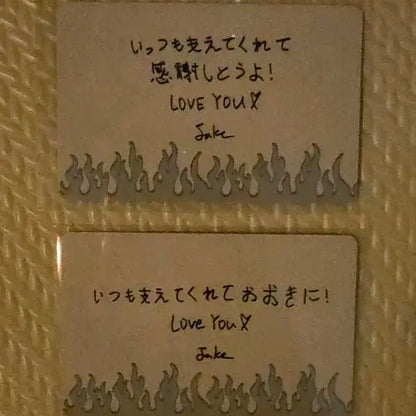 いっつも支えてくれて
感謝しとうよ!
LOVE YOU♡
Jake
いつも支えてくれておおきに!
Love You♡
Jake